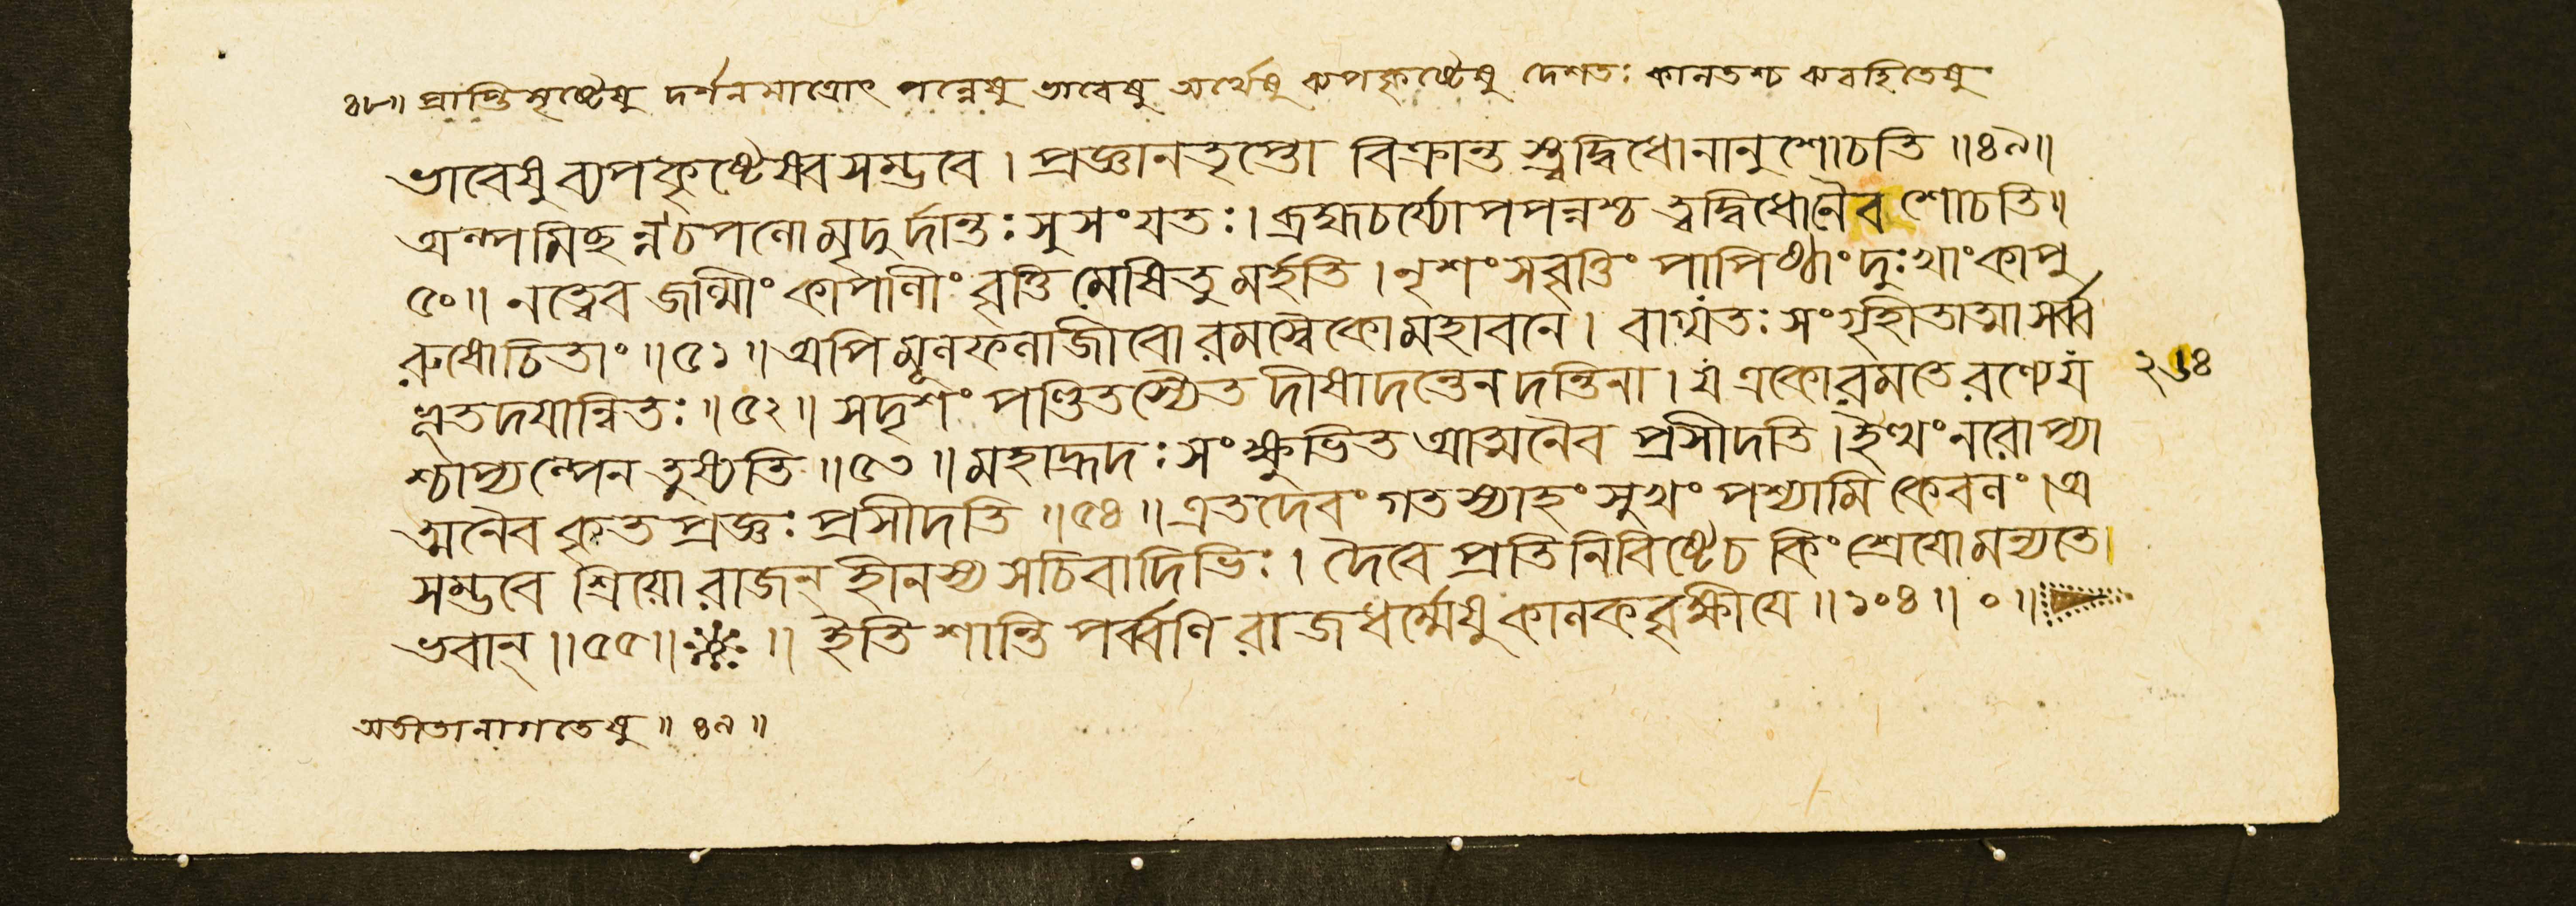 ৪৮॥ প্রাপ্তিসৃষ্টেষু দর্শনমাত্রোৎ পন্নেষু ভাবেষু অর্থেষু ব্যপকৃষ্টেষু দেশতঃ কালতশ্চ ব্যবহিতেষু
ভাবেষুব্যপকৃষ্টেষ্বসম্ভবে। প্রজ্ঞানতৃপ্তো বিক্রান্ত স্ত্বদ্বিধোনানুশোচতি ॥৪৯॥
অল্পমিছন্নচপলোমৃদুর্দান্তঃসুসংযতঃ। ব্রহ্মচর্য্যোপপন্নশ্চ ত্বদ্বিধোনৈব শোচতি॥
৫০॥ নত্বেব জাল্মীং কাপালীং বৃত্তি মেষিতু মর্হতি। নৃশংসবৃত্তিং পাপিষ্ঠাং দুঃখাং কাপু
রুষোচিতাং ॥৫১॥ অপি মূলফলাজীবো রমস্বৈকোমহাবনে। বাগ্যতঃ সংগৃহীতাত্মা সর্ব্ব
ভূতদয়ান্বিতঃ॥৫২॥ সদৃশং পণ্ডিতস্যৈত দীষাদন্তেন দন্তিনা। য একোরমতেরণ্যেয
শ্চাপ্যল্পেন তুষ্যতি ॥৫৩॥ মহাহ্রদঃ সংক্ষুভিত আত্মনৈব প্রসীদতি। ইত্থং নরোপ্যা
ত্মনৈব কৃত প্রজ্ঞঃ প্রসীদতি ॥৫৪॥ এতদেবং গতস্যাহং সুখং পশ্যামি কেবলং। অ
সম্ভবে শ্রিয়ো রাজন্ হীনস্য সচিবাদিভিঃ। দৈবে প্রতিনিবিষ্টেচ কিং শ্রেয়োমন্যতে
ভবান্ ॥৫৫॥ ॥ ইতি শান্তি পর্ব্বণি রাজধর্ম্মেষু কালকবৃক্ষীয়ে ॥১০৪॥ ০ ॥
২৬৪
অতীতানাগতেষু ॥ ৪৯ ॥